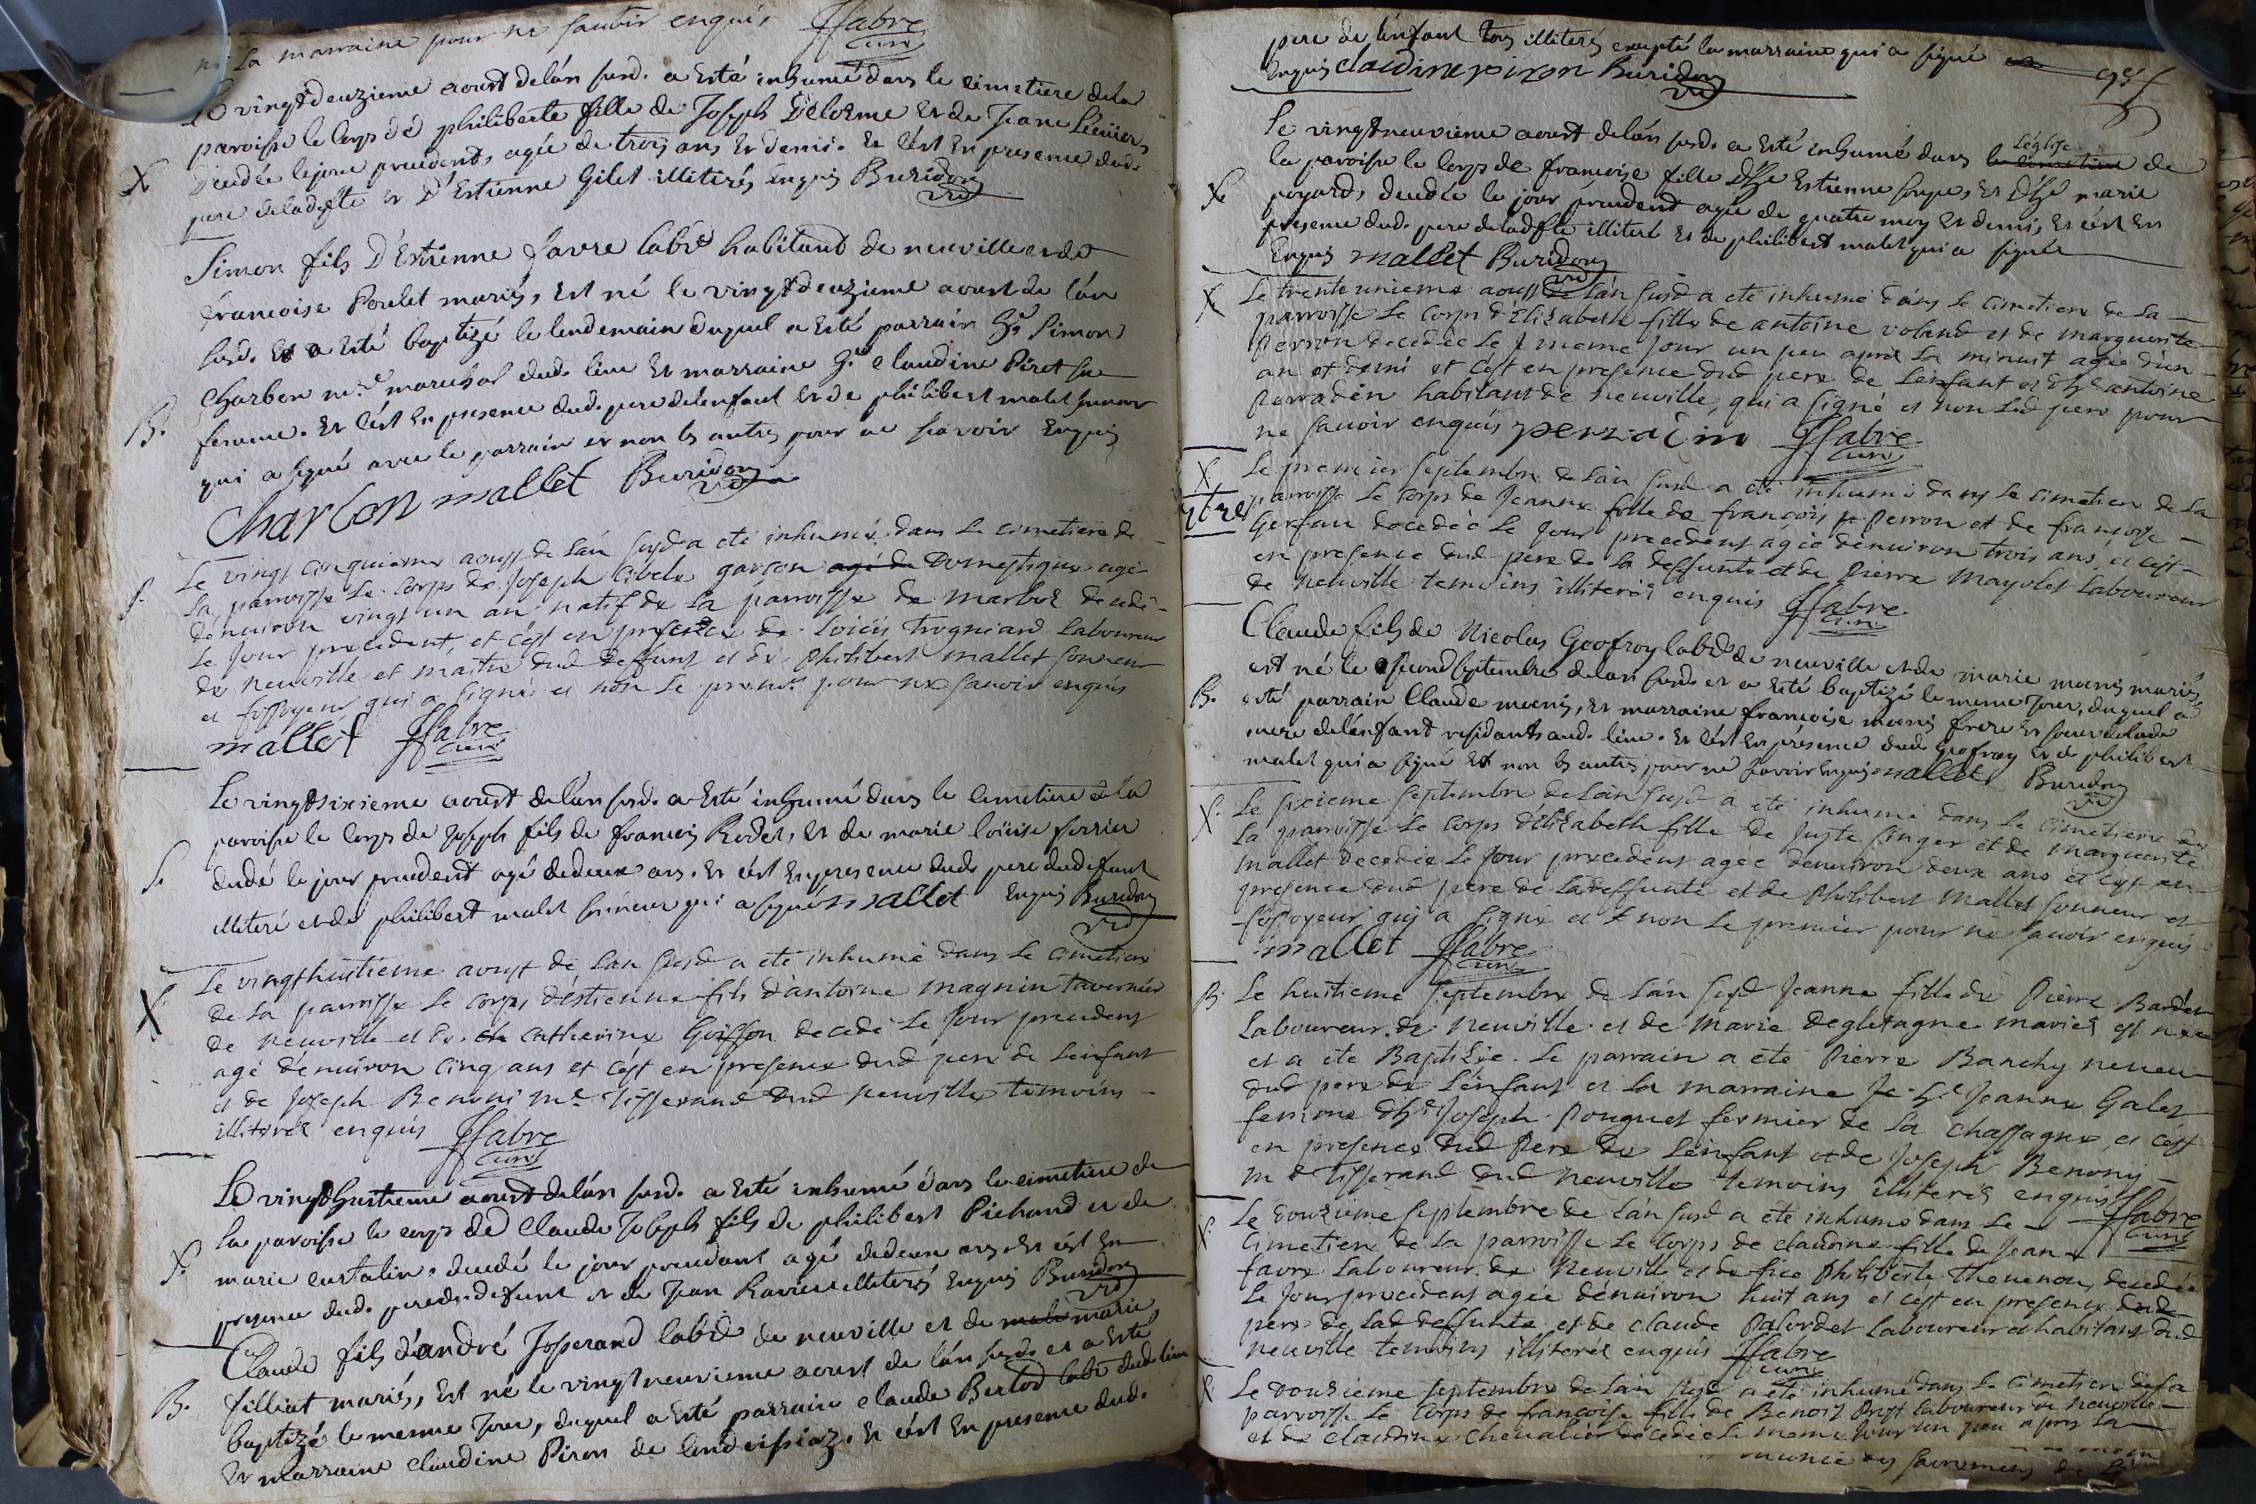 ni la marraine pour ne sauoir enquis JFabre
curé
Le vingtdeuzieme aoust de lán susd. a esté inhumé dans le cimetiere dela
paroisse le corps de philiberte fille de Joseph Delorme et de Jeane
decedée le jour precedent, agée de trois ans et demi. et cést en presence dud.
pere deladfte et d'Estienne Gilet illiterés enquis Buridon
vic
Simon fils D'Estienne favre labr habitant de neuville et de
francoise Poulet mariés, est né le vingtdeuzieme aoust de lán
susd. et a esté baptizé le lendemain duquel a esté parrain he Simon
Charbon me marechal dud. lieu et marraine he claudine Piret sa
B. femme. et cést en presence dud. pere delenfant et de philibert malet
qui a signé avec le parrain et non les autres pour ne sçavoir enquis
Charbon mallet Buridon
vic
Le vingt cinquieme aoust de lán susd a eté inhumé dans le cimetiere de
S. la parroisse le corps de Joseph garçon agé de Domestique agé
dénuiron vingt un an natif de la parroisse de marboz decedé
le jour precedent, et cést en presence de Trogniard laboureur
de neuville et maitre dud deffunt et de philibert mallet sonneur
et fossoyeur qui a signé et non le premr pour ne sauoir enquis
mallet JFabre
curé
Le vingtsixieme aoust delán susd. a esté inhumé dans le cimetiere de la
paroisse le corps de Joseph fils de francois Rodet, et de marie loüise ferrier
S. decedé le jour precedent agé dedeux ans. et cést en presence dud. pere dudefunt
illiteré et de philibert malet sonneur qui a signé mallet enquis Buridon
vic
Le vingthuitieme aoust de lán susd a eté inhumé dans le cimetiere
X de la parroisse le corps déstienne fils dántoine magnin tavernier
de neuville et de catherine Goiffon decedé le jour precedent
agé dénuiron cinq ans et cést en presence dud pere de lénfant
et de Joseph Benoni me tisserand dud neuville temoins
illiterés enquis JFabre
curé
Le vingthuitieme aoust delán susd. a esté inhumé dans le cimetiere de
la paroisse le corps de Claude Joseph fils de philibert Pichaud et de
S. marie decedé le jour precedant agé dedeux ans. et cést en
presence dud. pere dudefunt et de Jean illiterés enquis Buridon
vic
Claude fils dándré Josserand labr de neuville et de marie
filliat mariés, est né le vingtneuvieme aoust de lán susd. et a esté
B. baptizé le meme jour, duquel a esté parrain claude Bertod labr dud. lieu
et marraine claudine Piron de et cést en presence dud.
pere de lénfant tous illiterés excepté la marraine qui a signé
enquis claudine piron Buridon
vic
Le vingtneuvieme aoust delán susd. a esté inhumé dans léglise de
la paroisse le corps de francoise fille dhe Estienne et dhe marie
poyard, decedée le jour precedent agée de quatre moy et demi, et cést en
presence dud. pere deladfte illiteré et de philibert malet qui a signé
enquis mallet Buridon
vic
X Le trente unieme aoust de lán susd a eté inhumé dans le cimetiere de la
parroisse le corps d'Elizabeth fille de antoine voland et de marguerite
perron decedée le meme jour un peu apres la minuit agée d'un
an et demi et cést en presence dud pere de lénfant et dhe antoine
perradin habitant de neuville, qui a signé et non led pere pour
ne sauoir enquis perradin JFabre
curé
X Le premier septembre de lán susd a eté inhumé dans le cimetiere de la
parroisse le corps de Jeanne fille de françois perron et de françoise
Gerfau decedée le jour precedent agée dénuiron trois ans, et cést
en presence dud pere de la deffunte et de Pierre mayolet laboureur
de neuville temoins illiterés enquis JFabre
curé
Claude fils de Nicolas Geofroy labr de neuville et de marie mariés,
est né le second septembre delán susd. et a esté baptizé le meme jour, duquel a
B. esté parrain Claude et marraine francoise frere et soeur delade
mere delénfant residants aud. lieu. et cést en présence dud. Geofroy et de philibert
malet qui a signé et non les autres pour ne scavoir enquis mallet Buridon
vic
X. Le sixieme septembre de lán susd a eté inhumé dans le cimetiere de
la parroisse le corps d'élizabeth fille de Juste singer et de marguerite
mallet decedée le jour precedent agée dénuiron deux ans et cést en
presence dud pere de la deffunte et de philibert mallet sonneur et
fossoyeur qui a signé et non le premier pour ne sauoir enquis
mallet JFabre
curé
B. Le huitieme septembre de lán susd Jeanne fille de Pierre
laboureur de neuville et de marie degletagne mariés est née
et a eté Baptisée. le parrain a eté Pierre neueu
dud pere de lénfant et la marraine he Jeanne Galet
femme dhe Joseph Pouguet fermier de la chassagne, et cést
en presence dud Pere de lénfant et de Joseph Benony
me tisserand dud neuville temoins illiterés enquis JFabre
curé
X. Le douzieme septembre de lán susd a eté inhumé dans le
cimetiere de la parroisse le corps de claudine fille de Jean
favre laboureur de neuville et de fue philiberte Thenenon, decedée
le jour precedent agée dénuiron huit ans et cést en presence dud
pere de lad deffunte et de claude Palordet laboureur et habitant dud
neuville temoins illiterés enquis JFabre
curé
X Le douzieme septembre de lán susd a eté inhumé dans le cimetiere de la
parroisse le corps de françoise fille de Benoit laboureur de neuville
et de claudine chevalier decedée le meme jour un peu apres la
munie des sacremens de